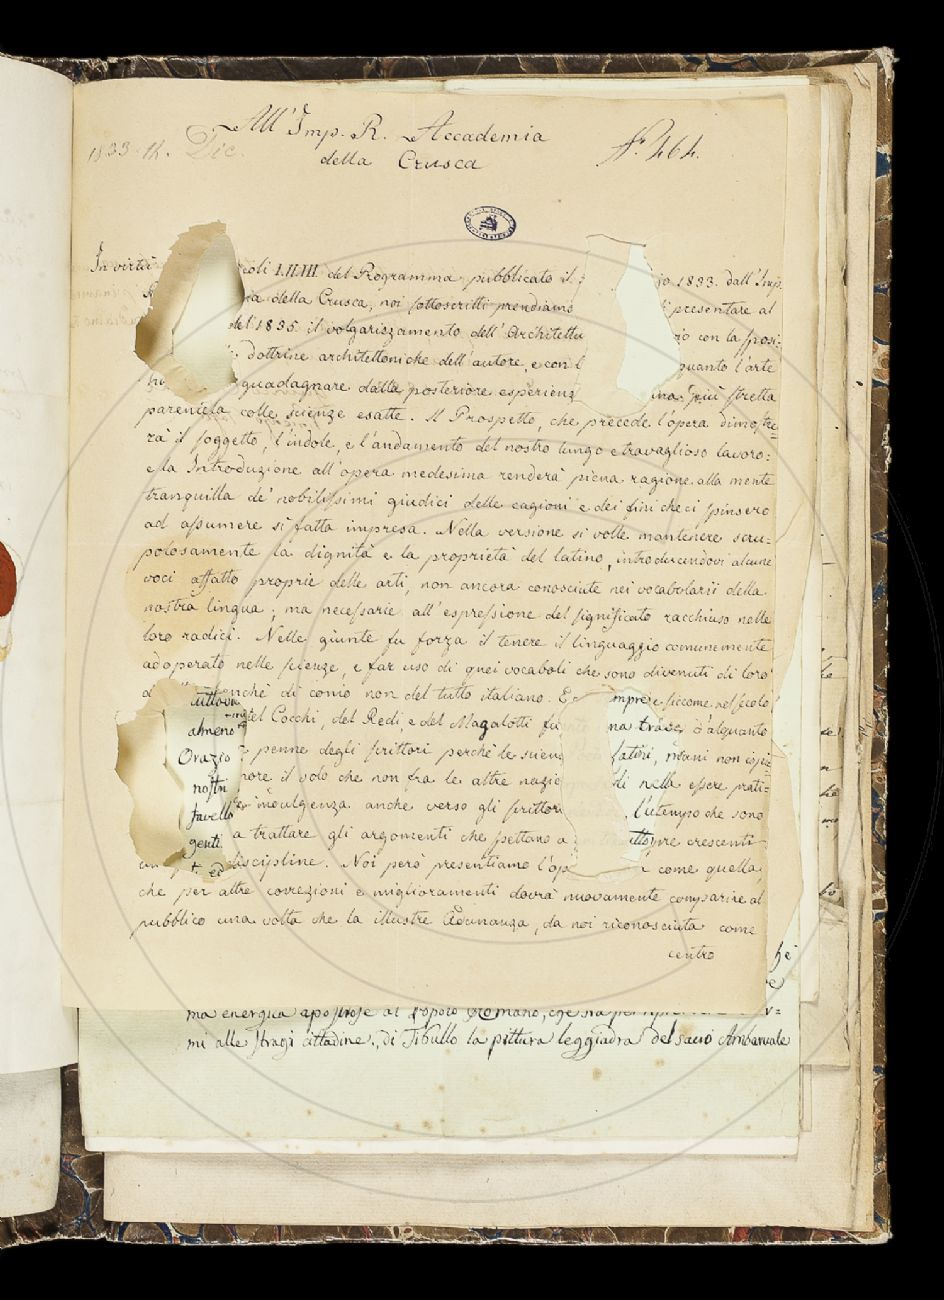 All' Imp. R. Accademia
1833. 14. Dic.
della Crusca
N.º 464.
In virtù coli I. II. III. del Programma pubblicato il io 1833. dall' Imp.
ia della Crusca, noi sottoscritti prendiamo di presentare al
del 1835 il volgarizzamento dell' Architettu io con la
dottrine architettoniche dell' autore, e con l quanto l'arte
guadagnare dalla posteriore esperienz una più stretta
parentela colle scienze esatte. Il Prospetto, che precede l'opera dimostre=
rà il soggetto, l'indole, e l'andamento del nostro lungo e travaglioso lavoro:
e la Introduzione all' opera medesima renderà piena ragione alla mente
tranquilla de' nobilissimi giudici delle cagioni e dei fini che ci spinsero
ad assumere sì fatta impresa. Nella versione si volle mantenere scru=
polosamente la dignità e la proprietà del latino, introducendovi alcune
voci affatto proprie delle arti, non ancora conosciute nei vocabolarii della
nostra lingua; ma necessarie all' espressione del significato racchiuso nelle
loro radici. Nelle giunte fu forza il tenere il linguaggio comunemente
adoperato nelle scienze, e far uso di quei vocaboli che sono divenuti di loro
benchè di conio non del tutto italiano. E siccome nel secolo
del Cocchi, del Redi, e del Magalotti fu d'alquanto
penne degli scrittori perchè le scien
il volo che non fra le altre nazio
indulgenza anche verso gli scrittor che sono
a trattare gli argomenti che spettano a pre crescenti
discipline. Noi però presentiamo l'op come quella,
che per altre correzioni e miglioramenti dovrà nuovamente comparire al
pubblico una volta che la illustre Adunanza, da noi riconosciuta come
centro
tuttova
almeno
Orazio
nostri
favello
genti
ed
ma energica apostrofe al Popolo Romano, che
mi alle stragi cittadine, di Tibullo la pittura leggiadra del sacro Ambarvale